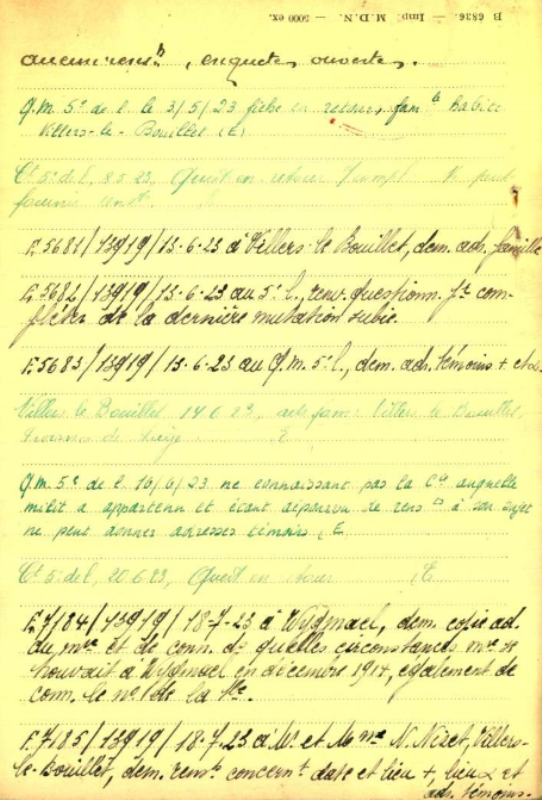 B 6836. — Imp. M.D.N. — 5000 ex.
aucun rens.ts, enquêtes ouvertes.
Q.M. 5e de l. le 3/5/23 fiche en retour, famlle habite
Villers-le-Bouillet (E)
Ct 5e de l, 8.5.23, Quest en retour Ne peut
fournir
F.5681/13919/13-6-23 à Villers-le-Bouillet, dem. adr. famille
F.5682/13919/13-6-23 au 5e l., renv. questionn. pr com-
pléter de la dernière mutation subie.
F.5683/13919/13-6-23 au Q.M. 5e l., dem. adr. témoins +
Villers le Bouillet 14.6.23, adr fam: Villers le Bouillet,
Province de Liège E
Q.M. 5e de l 16/6/23 ne connaissant pas la Cie auquelle
milit a appartenu et étant dépourvu de rens ts à son sujet
ne peut donner adresses témoins (E
Ct 5e de l, 20.6.23, Quest en retour (E
F.7184/13919/18-7-23 à Wygmael, dem. copie ad.
au mre et de conn. ds quelles circonstances mre se
trouvait à Wygmael en décembre 1914, également de
conn. le no de la
F.7185/13919/18-7-23 à Mr. et Mme N. Nizet, Villers-
le-Bouillet, dem. remts concernt date et lieu +, lieux et
adr. témoins.